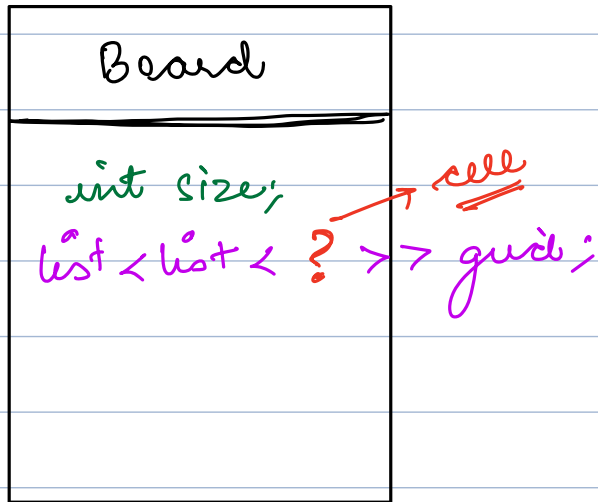 Board
int size;
cell
list < list < ? > > grid;